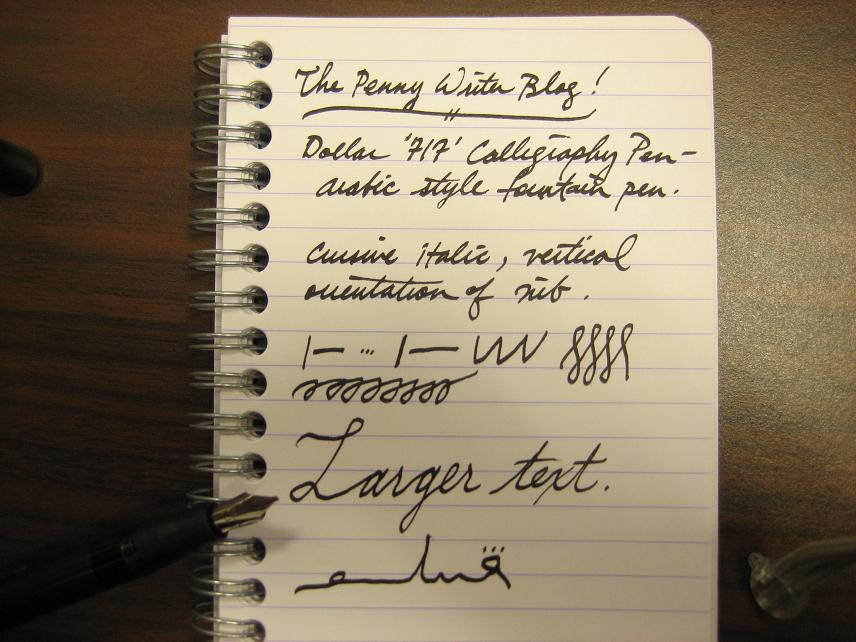 The Penny Writer Blog!
Dollar '717' Calligraphy Pen-
arabic style fountain pen.
Cursive italic, vertical
orientation of nib.
Larger text.